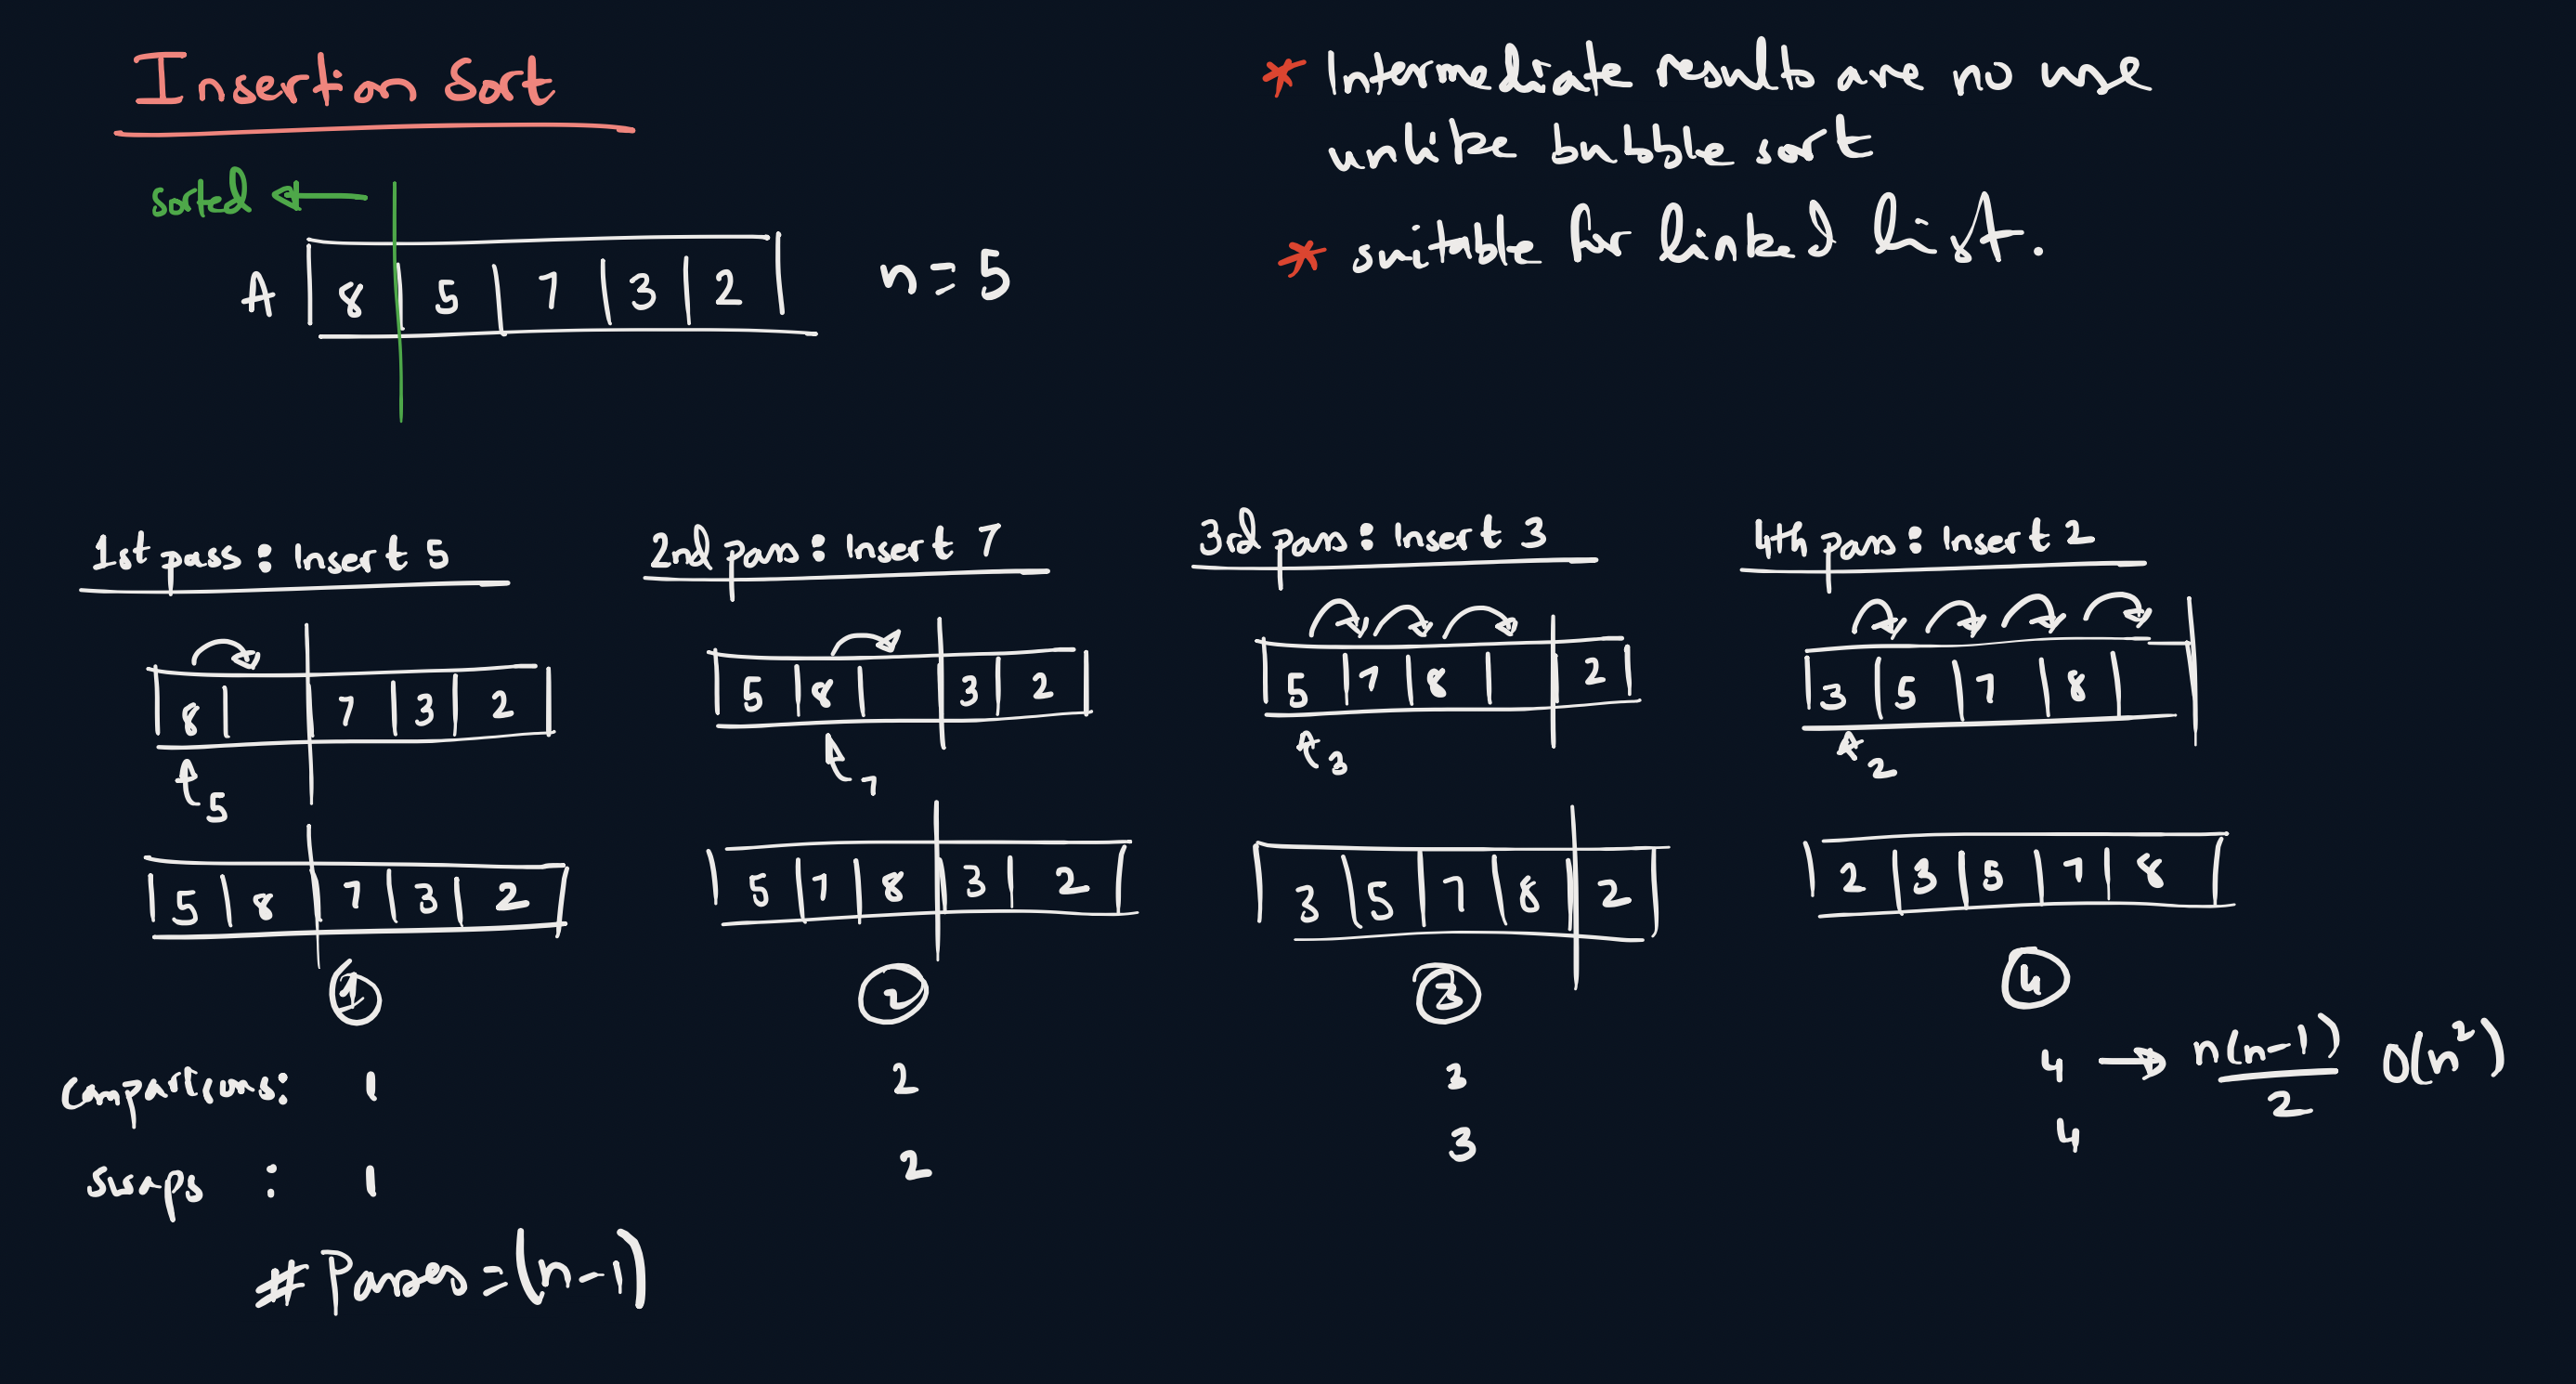 Insertion Sort
sorted
A 8 5 7 3 2 n = 5
* Intermediate results are no use
unlike bubble sort
* suitable for linked list.
1st pass: Insert 5
8 7 3 2
5
5 8 7 3 2
1
2nd pass: Insert 7
5 8 3 2
7
5 7 8 3 2
2
3rd pass: Insert 3
5 7 8 2
3
3 5 7 8 2
3
4th pass: Insert 2
3 5 7 8
2
2 3 5 7 8
4
comparisons: 1 2 3 4 → n(n-1)/2 O(n²)
swaps : 1 2 3 4
# Passes = (n-1)